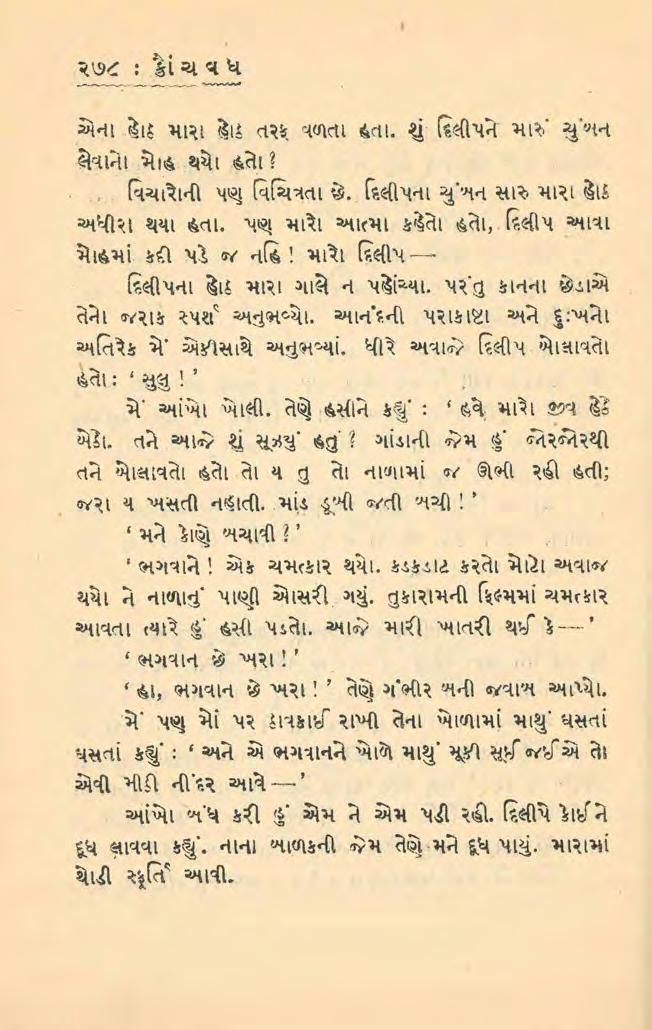 ૨૭૮ : ક્રૌંચવધ
એના હોઠ મારા હોઠ તરફ વળતા હતા. શું દિલીપને મારું ચુંબન
લેવાનો મોહ થયો હતો?
વિચારોની પણ વિચિત્રતા છે. દિલીપના ચુંબન સારુ મારા હોઠ
અધીરા થયા હતા. પણ મારો આત્મા કહેતો હતો, દિલીપ આવા
મોહમાં કદી પડે જ નહિ! મારો દિલીપ—
દિલીપના હોઠ મારા ગાલે ન પહોંચ્યા. પરંતુ કાનના છેડાએ
તેનો જરાક સ્પર્શ અનુભવ્યો. આનંદની પરાકાષ્ટા અને દુઃખનો
અતિરેક મેં એકીસાથે અનુભવ્યાં. ધીરે અવાજે દિલીપ બોલાવતો
હતો: ‘સુલુ!’
મેં આંખો ખોલી. તેણે હસીને કહ્યું : ‘હવે મારો જીવ હેઠે
બેઠો. તને આજે શું સૂઝ્યું હતું? ગાંડાની જેમ હું જોરજોરથી
તને બોલાવતો હતો તો ય તુ તો નાળામાં જ ઊભી રહી હતી;
જરા ય ખસતી નહાતી. માંડ ડૂબી જતી બચી!’
‘મને કોણે બચાવી?’
‘ભગવાને! એક ચમત્કાર થયો. કડકડાટ કરતો મોટો અવાજ
થયો ને નાળાનું પાણી ઓસરી ગયું. તુકારામની ફિલ્મમાં ચમત્કાર
આવતા ત્યારે હું હસી પડતો. આજે મારી ખાતરી થઈ કે—’
‘ભગવાન છે ખરા!’
‘હા, ભગવાન છે ખરા!’ તેણે ગંભીર બની જવાબ આપ્યો.
મેં પણ મોં પર ઠાવકાઈ રાખી તેના ખોળામાં માથું ઘસતાં
ઘસતાં કહ્યું : ‘અને એ ભગવાનને ખોળે માથું મૂકી સૂઈ જઈએ તો
એવી મીઠી નીંદર આવે—’
આંખો બંધ કરી હું એમ ને એમ પડી રહી. દિલીપે કોઈને
દૂધ લાવવા કહ્યું. નાના બાળકની જેમ તેણે મને દૂધ પાયું. મારામાં
થોડી સ્ફૂર્તિ આવી.